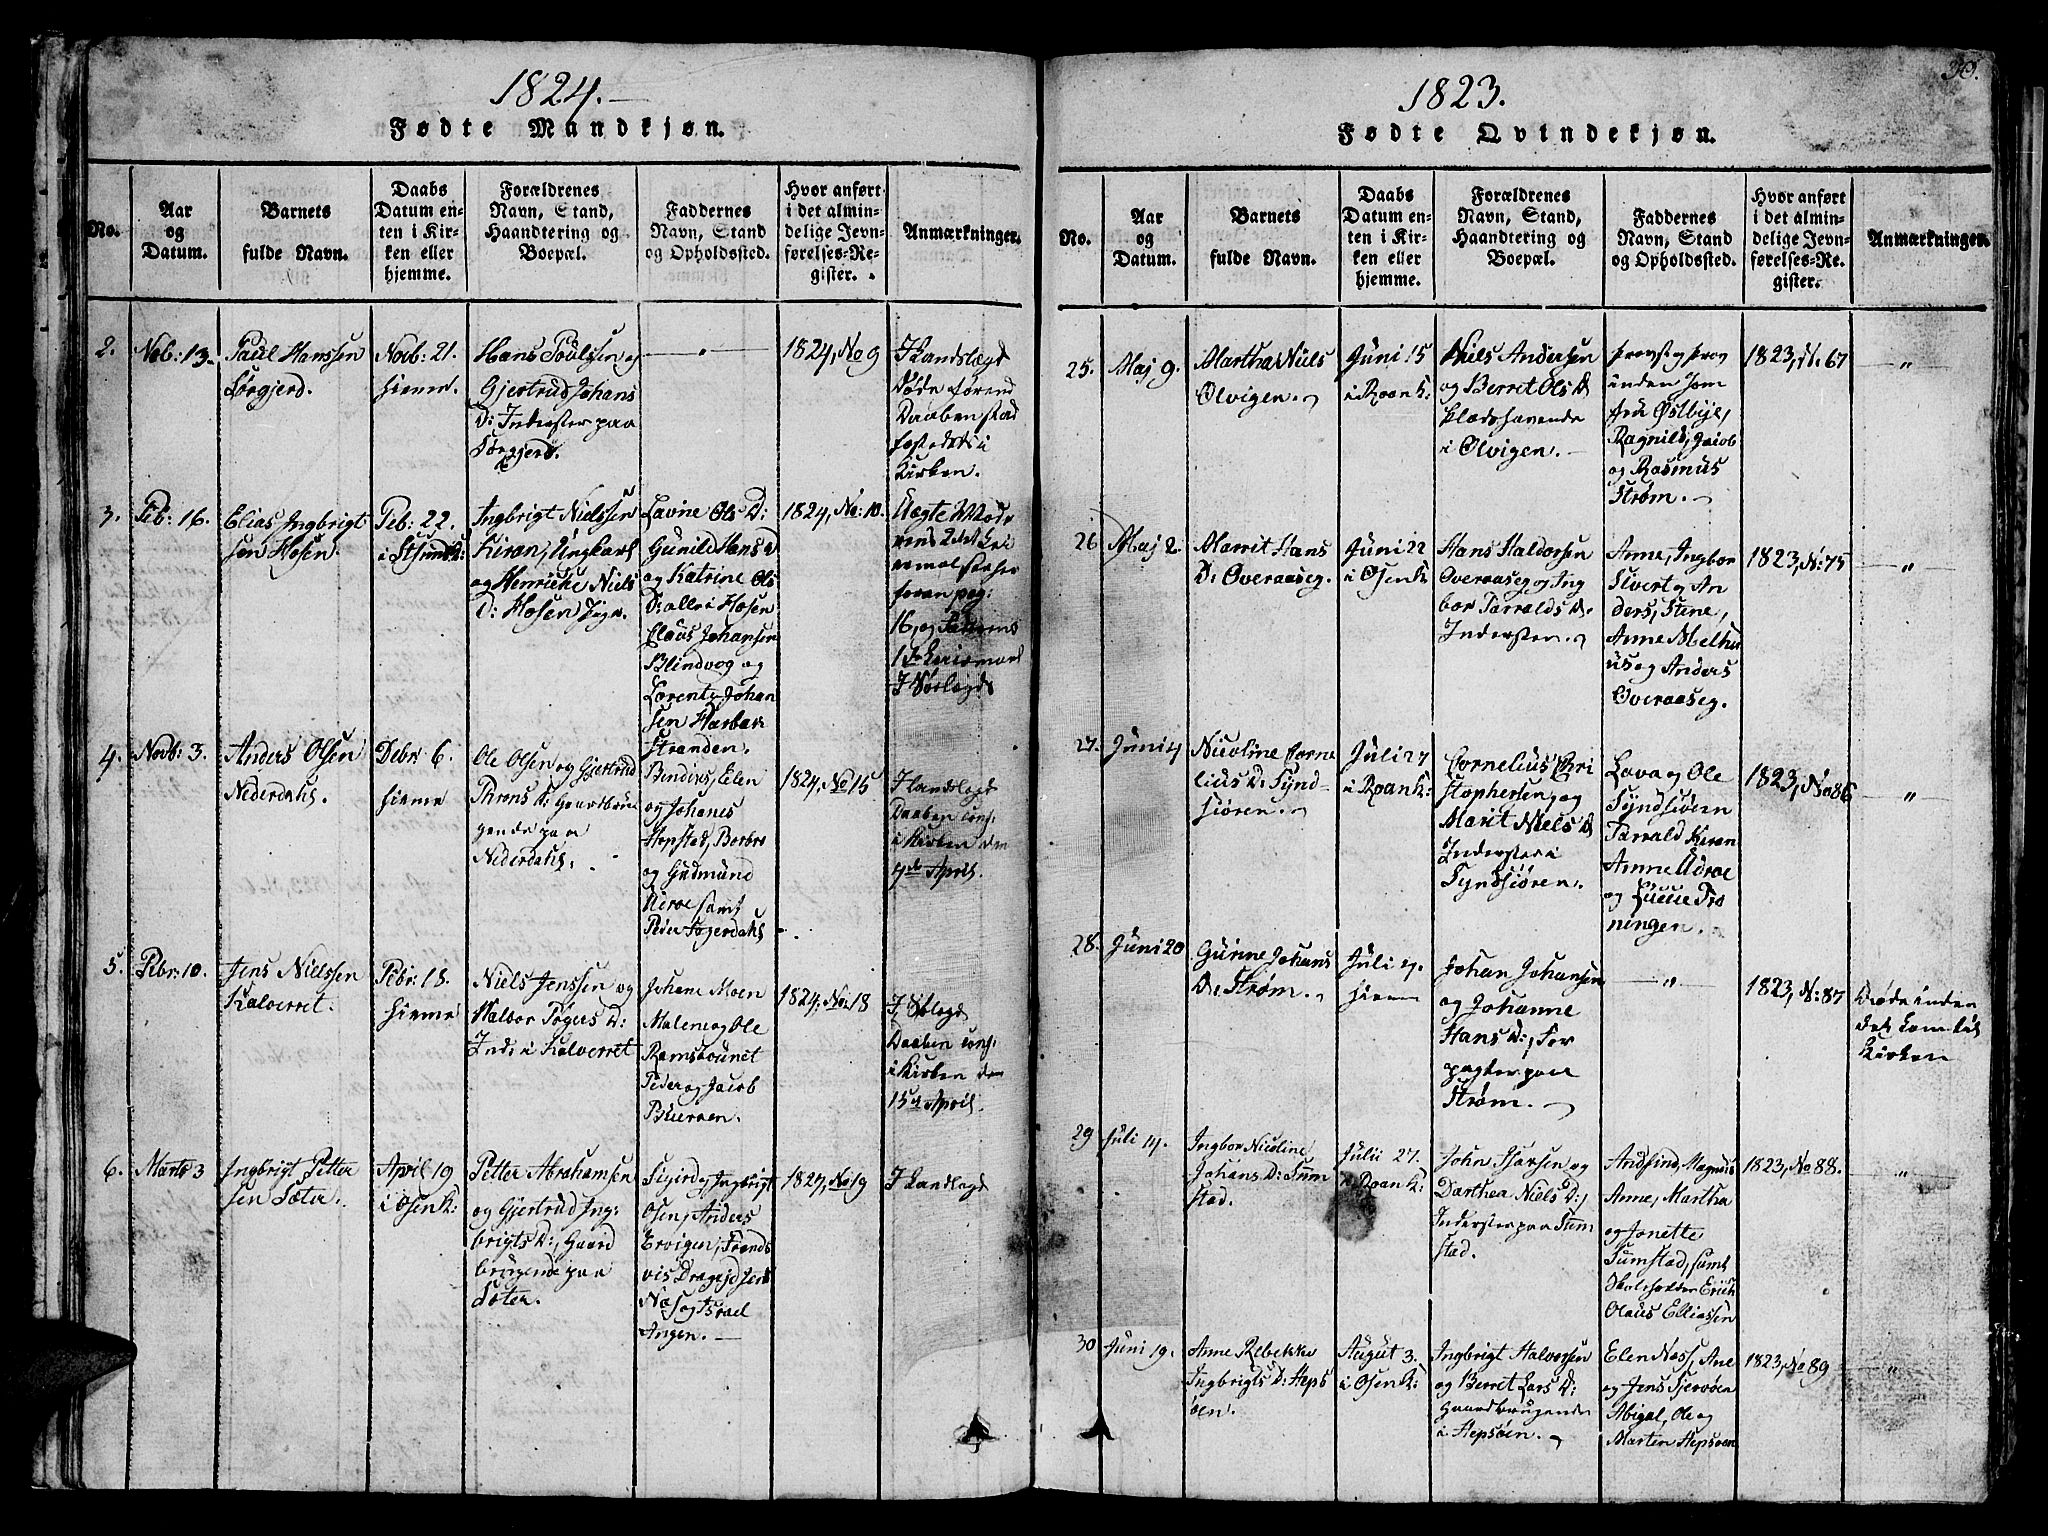 1824.
Fødte Mandkjøn.
No.
Aar
og
Datum.
Barnets
fulde Navn.
Daabs
Datum en-
ten i Kir-
ken eller
hjemme.
Forældrenes
Navn, Stand,
Haandtering og
Boepæl.
Faddernes
Navn, Stand
og Opholdssted.
Hvor anført
i det almin-
delige Jevn-
førelses-Re-
gister.
Anmærkninger.
2.
Nob: 13.
Paul Hanssen
Sørgjerd.
Novb: 21.
hieme.
Hans Poulssen og
Gjertrud Johans
D: Inderster paa
Sørgjerd.
— " —
1824, No 9
I Landslægd
Døde førend
Daaben stad
fæstedes i
Kirken.
3.
Feb: 16.
Elias Ingbrigt
sen Hosen.
Feb: 22.
Ingbrigt Nielssen
Kiran, Ungkarl
og Henricke Niels
D: Hosen Pige.
Lavine Ols D:
Gunild Hans D
og Katrine Ols
D: alle i Hosen
Claus Johansen
Blindvog og
Lorentz Johan
sen Harbak
Stranden.
1824, No: 10.
Uægte Mode
rens 2det Lei
ermal, see her
foran pag:
16, og
1ste Leiermaal
I Sølægd
4.
Novb: 3.
Anders Olsen
Nederdahl.
Debr. 6.
hieme
Ole Olsen og Gjertrud
D: Gaardbru
gende paa
Nederdahl.
Elen
og Johanes
Hopstad, Berbro
og Gudmund
samt
Peder
1824, No 15
I Landslægd
Daaben conf.
i Kirken den
4de April.
5.
Febr: 10.
Jens Nielssen
Kalverret.
Febr: 18.
hieme
Niels Jenssen og
D:
Ind: i Kalverret
Johane Moen
Malene og Ole
Peder og Jacob
1824, No: 18
I Sølægd
Daaben conf.
i Kirken den
15d April.
6.
Marts 3
Ingbrigt Petter
sen Sæter.
April 19
i Osen K:
Petter Abrahamsen
og Gjertrud Ing-
brigts D:, Gaard
brugende paa
Sæter.
Sigri og Ingbrigt
Osen, Anders
Ervigen,
Næs og Israel
Angen. —
1824, No 19
I Landlægd
30.
1823.
Fødte Qvindekjøn.
No.
Aar
og
Datum.
Barnets
fulde Navn.
Daabs
Datum en-
ten i Kir-
ken eller
hjemme.
Forældrenes
Navn, Stand,
Haandtering og
Boepæl.
Faddernes
Navn, Stand
og Opholdssted.
Hvor anført
i det almin-
delige Jevn-
førelses-Re-
gister.
Anmærkninger.
25.
Maj 9.
Martha Niels
Olvigen.
Juni 15
i Roan K:
Niels Andersen
og Berret Ols D
pladshavende
i Olvigen. —
Provst og Prov
stinden Jom
fru Østbye,
Ragnild, Jacob
og Rasmus
Strøm.
1823, N. 67
— " —
26
Maj 2.
Marrit Hans
D: Overaaseg.
Juni 22
i Osen K
Hans Haldorsen
Overaaseg og Ing
bor Tarralds D.
Indersten.
Anne, Ingbor
Sivert og An
ders, Stene,
Anne Melhu
us og Anders
Overaaseg.
1823, N: 75
— " —
27.
Juni 4
Nicoline Corne
lius D: Tynd-
siøren.
Juli 27
i Roan K:
Cornelius Chri
stophersen og
Marit Niels D
Inderster i
Tyndsiøren.
Lava og Ole
Tyndsiøren
Tarrald Kiran
Anne Udroe
ningen.
1823, No 86
— " —
28.
Juni 20
Gurine Johans
D: Strøm.
Juli 4.
hieme
Johan Johansen
og Johanne
Hans D:, For
pagter paa
Strøm.
— " —
1823, N: 87
Døde inden
det kom til
Kirken
29
Juli 14.
Ingbor Nicoline
Johans D: Sum
stad.
Julii 27.
i Roan K:
John
Darthea Niels D:
Inderster paa Sum
stad.
Andfind, Magnil
Anne, Martha
og Jonette
Sumstad, samt
Skoleholder Erich
Olaus Elliassen
1823, No 88.
"
30
Juni 19.
Anne Rebekke
Ingbrigts D: Heps
øen.
August 3.
i Osen K:
Ingbrigt Halvorsen
og Berret Lars D:
Gaardbrugende
i Hepsøen.
Elen Næss, Ane
og Jens Sjervøen
Abigal, Ole og
Marten Hepsøen
1823, No 89
"